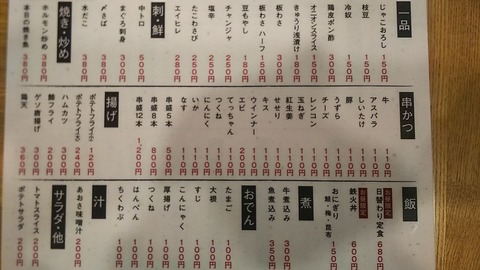 一品
じゃこおろし 150円
枝豆 150円
冷奴 150円
鶏皮ポン酢 300円
オニオンスライス 150円
きゅうり浅漬け 150円
板わさ 300円
板わさハーフ 150円
豆もやし 180円
チャンジャ 250円
塩辛 250円
たこわさび 250円
エイヒレ 280円
刺・鮮
中トロ 500円
まぐろ刺身 300円
〆さば 380円
水だこ 380円
焼き・炒め
ホルモン炒め 380円
本日の焼き魚 380円
串かつ
牛 110円
アスパラ 110円
しいたけ 110円
豚 110円
うずら 110円
チーズ 110円
レンコン 110円
玉ねぎ 110円
紅生姜 110円
せせり 110円
キス 110円
ウインナー 110円
エビ 200円
てっちゃん 110円
つくね 110円
にんにく 110円
いか 110円
なす 110円
串盛5本 500円
串盛8本 800円
串盛12本 1,200円
揚げ
ポテトフライ小 120円
ポテトフライ大 240円
ハムカツ 300円
鯵フライ 200円
ゲソ唐揚げ 300円
鶏天 360円
飯
日替わり定食 680円
鉄火丼 600円
おにぎり 鮭・梅・昆布 150円
煮
牛煮込み 300円
魚煮込み 350円
おでん
たまご 100円
大根 100円
すじ 100円
こんにゃく 100円
厚揚げ 100円
つくね 100円
はんぺん 100円
ちくわぶ 100円
汁
あおさ味噌汁 200円
サラダ・他
トマトスライス 200円
ポテトサラダ 200円